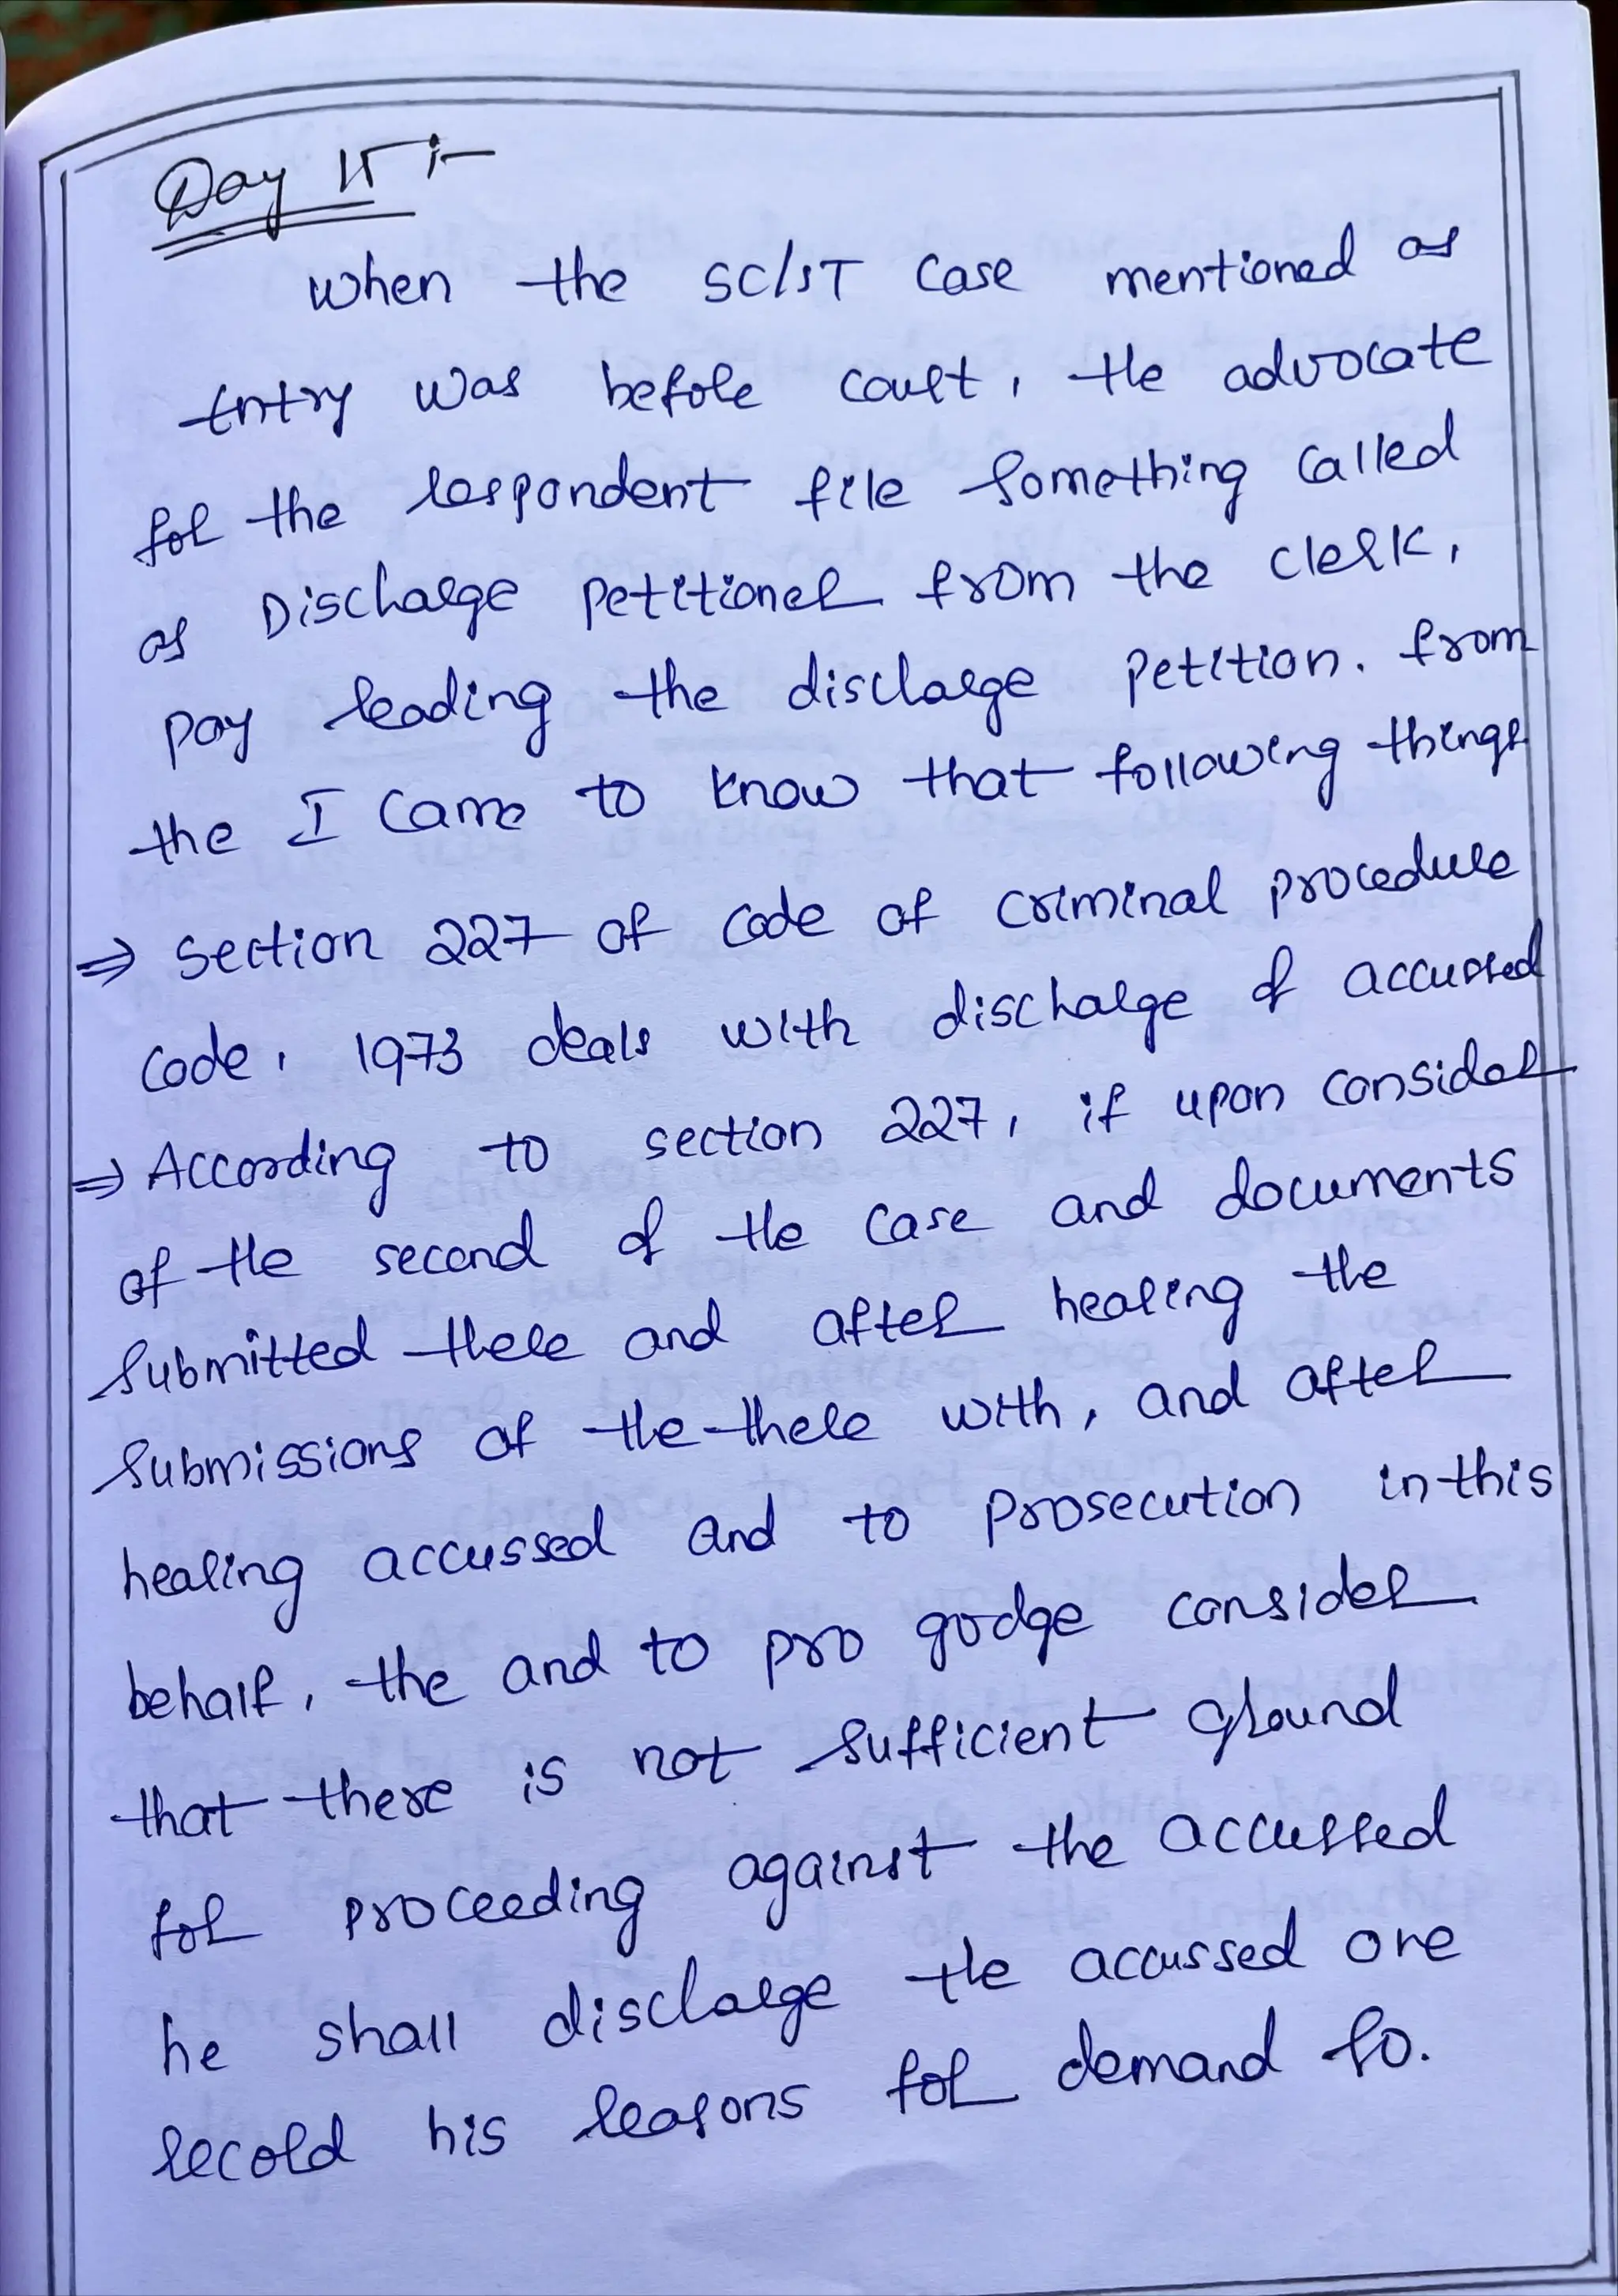 Day 15 :-
when the SC/ST Case mentioned as
Entry was before court, the advocate
for the respondent file Something called
as Discharge Petitioner from the clerk,
pay reading the discharge Petition. from
the I Came to know that following things
⇒ Section 227 of Code of Criminal procedure
Code, 1973 deals with discharge of accussed
⇒ According to section 227, if upon consider
of the second of the Case and documents
Submitted there and after hearing the
Submissions of the there with, and after
hearing accussed and to Prosecution in this
behalf, the and to pro godge consider
that there is not Sufficient ground
for proceeding against the accussed
he shall discharge the accussed one
record his reasons for demand So.